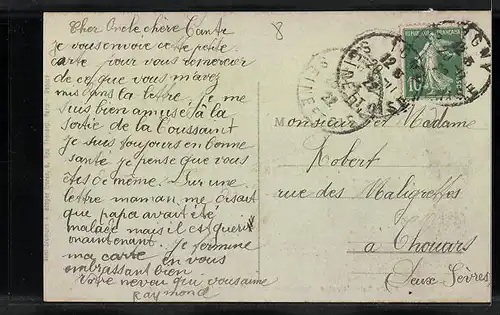 Cher Oncle chère Tante
je vous envoie cette petite
carte pour vous remercier
de ce que vous m'avez
mis dans la lettre. Je me
suis bien amusé à la
sortie de la Toussaint
je suis toujours en bonne
santé je pense que vous
êtes de même. Sur une
lettre maman me disait
que papa avait été
malade mais il est guéri
maintenant. Je termine
ma carte en vous
embrassant bien
Votre neveu qui vous aime
Raymond
8
10
Monsieur et Madame
Robert
rue des Maligrettes
a Thouars
(Deux Sèvres)